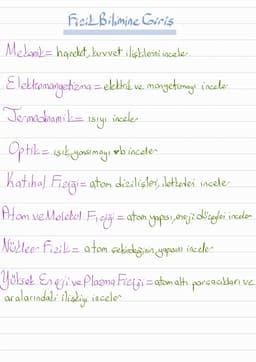 Fizik Bilimine Giriş
Mekanik = hareket, kuvvet ilişkilerini inceler
Elektromangetizma = elektrik ve manyetizmayı inceler
Termodinamik = ısıyı inceler
Optik = ışık yansımayı vb inceler
Katıhal Fiziği = atom dizilişler, iletkenleri inceler
Atom ve Molekül Fiziği = atom yapısı, enerji düzeyleri inceler
Nükleer Fizik = atom çekirdeğinin yapısını inceler
Yüksek Enerji ve Plazma Fiziği = atom altı parçacıkları ve
aralarındaki ilişkiyi inceler